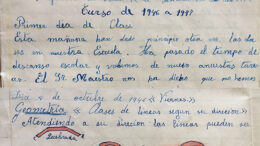 Curso de 1946 a 1947
Primer día de Clase
Esta mañana han dado principio otra vez, las cla
ses en nuestra Escuela. Ha pasado el tiempo de
descanso escolar y volvemos de nuevo a nuestras tareas
El Sr Maestro nos ha dicho que
de octubre de 1946 «Viernes»
Geometría « Clases de líneas según su dirección»
Atendiendo a su dirección las líneas pueden ser
Quebrada